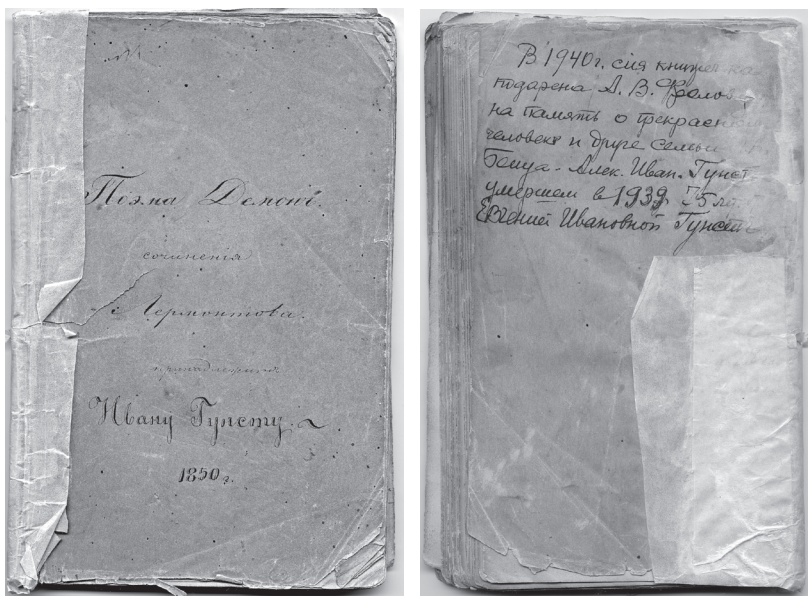 Поэма Демонъ.
сочиненія
Лермонтова.
принадлежитъ
Ивану Гунсту.
1850 г.
В 1940 г. сия книжка
подарена А. В.
на память о прекрасном
человеке и друге семьи
Бенуа - Алек. Иван. Гунст
умершем в 1939 75 л.
Евгенией Ивановной Гунст